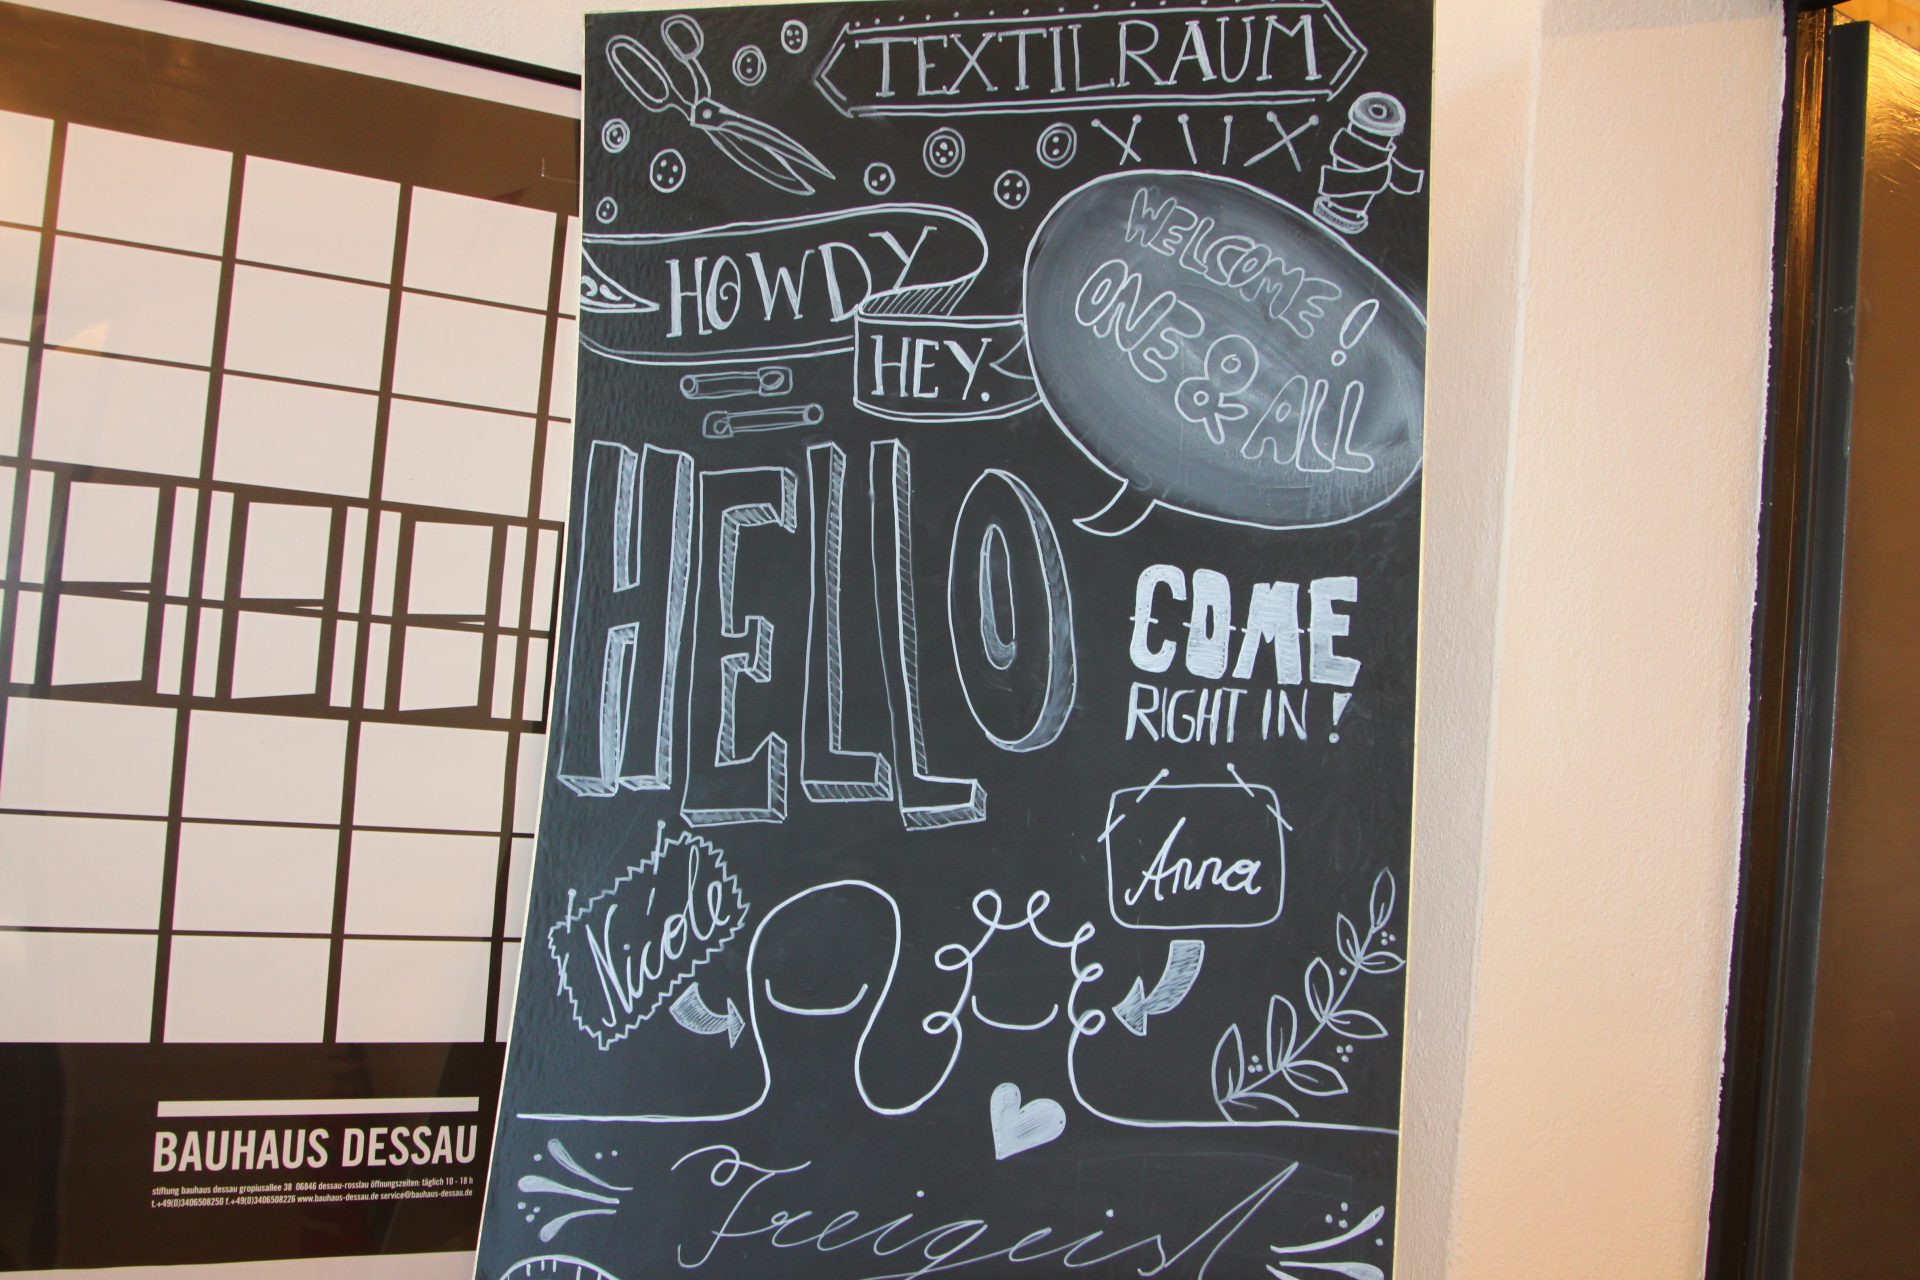 TEXTILRAUM
HOWDY
HEY.
WELCOME!
ONE & ALL
HELLO
COME
RIGHT IN!
Nicole
Anna
Freigeist
BAUHAUS DESSAU
stiftung bauhaus dessau gropiusallee 38 06846 dessau-rosslau öffnungszeiten: täglich 10 - 18 h
t.+49(0)3406508250 f.+49(0)3406508226 www.bauhaus-dessau.de service@bauhaus-dessau.de